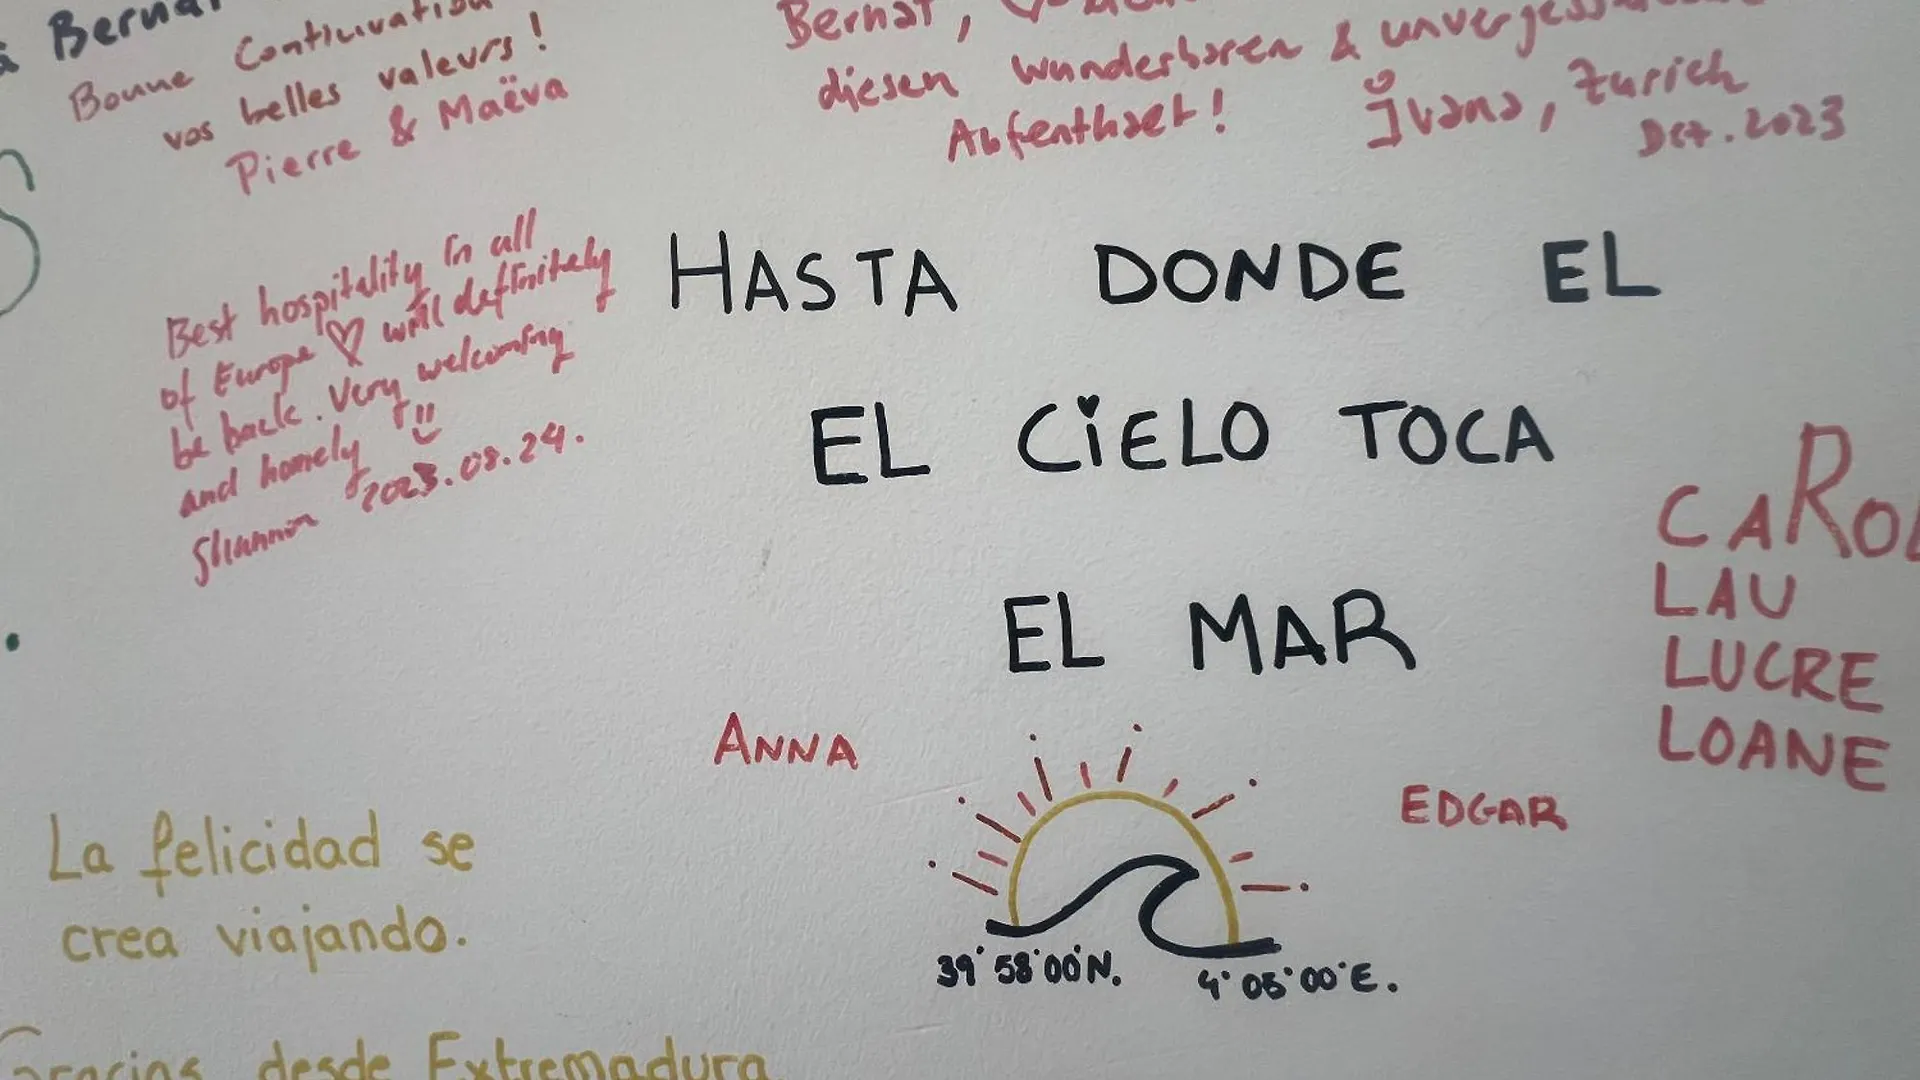 à Bernat
Bonne Continuation
vos belles valeurs !
Pierre & Maëva
Bernat,
diesen wunderbaren &
Aufenthalt!
Ivana, Zurich
Dez. 2023
Best hospitality in all
of Europe ♡ will definitely
be back. Very welcoming
and homely
Shannon 2023.08.24.
HASTA DONDE EL
EL CIELO TOCA
EL MAR
ANNA
EDGAR
39°58'00"N.
4°05'00"E.
CAROL
LAU
LUCRE
LOANE
La felicidad se
crea viajando.
Gracias desde Extremadura